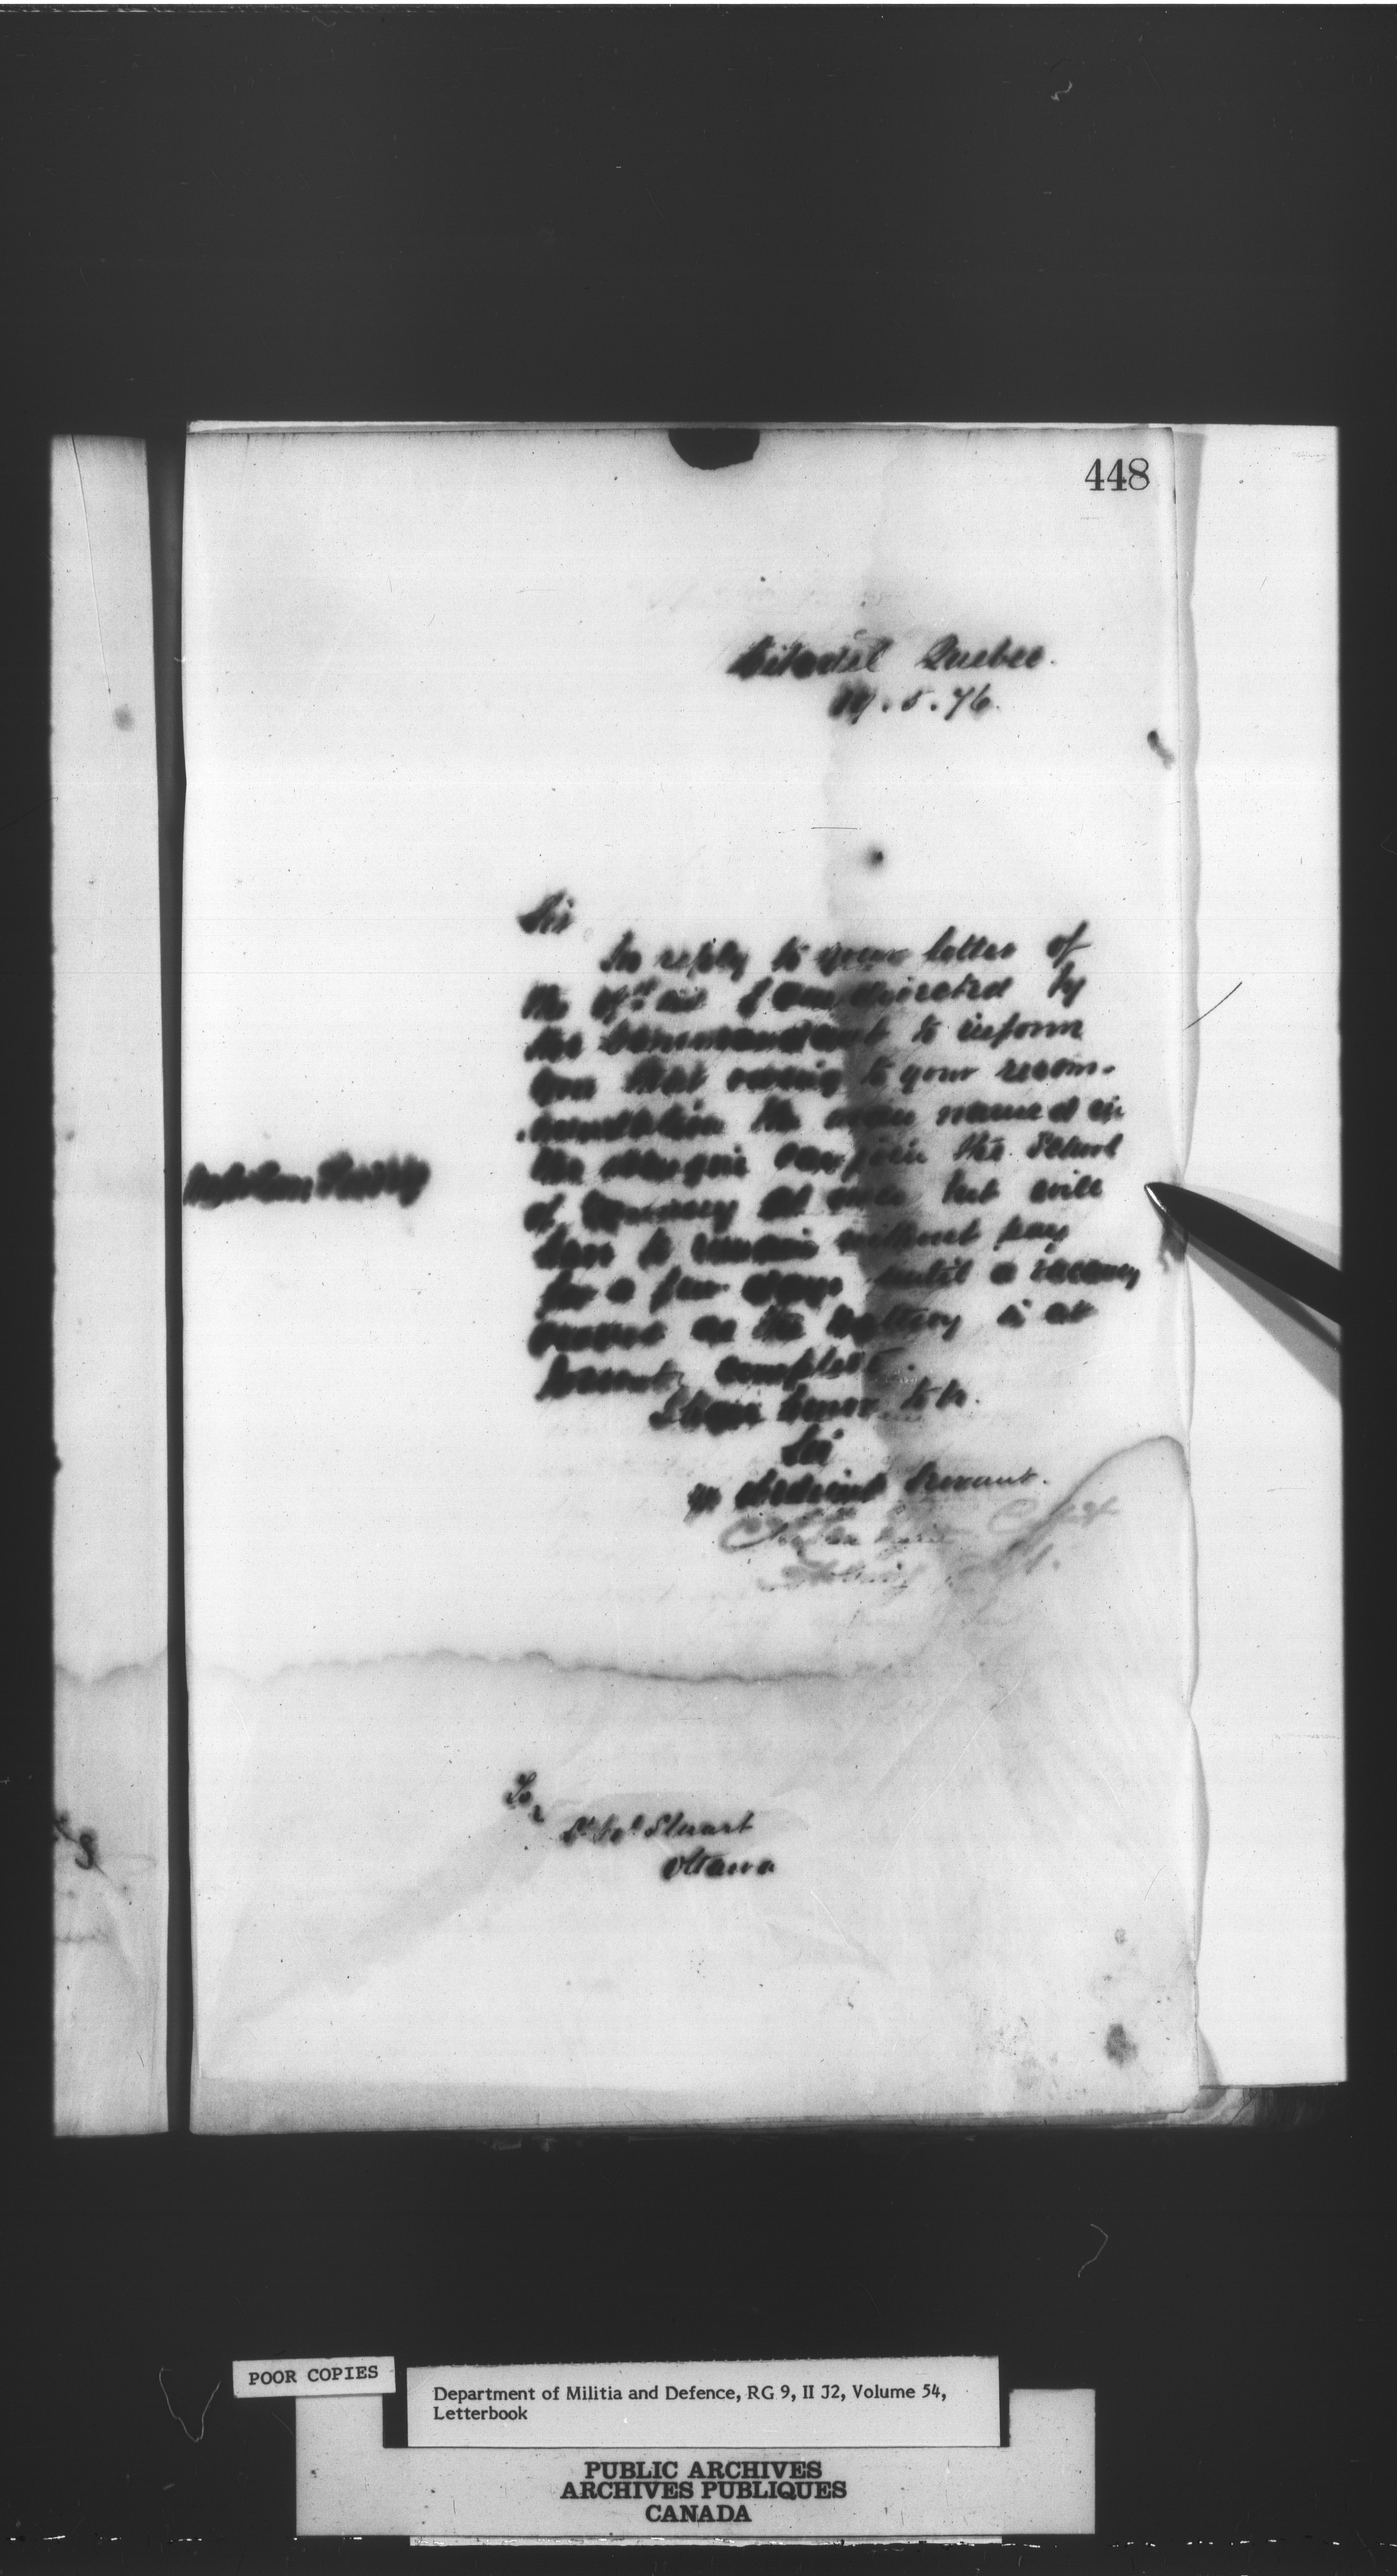 448
Citadel Quebec.
19.5.76.
Sir
In reply to your letter of
the inst I am directed by
the Commandant to inform
you that owing to your recom-
-mendation the man named in
the margin can join the School
of Gunnery at once but will
have to remain without pay
for a few days until a vacancy
occurs as the battery is at
present complete.
I have honor to be.
Sir
yr obedient Servant.
Capt
Napoleon
To,
Lt Col Stuart
Ottawa
POOR COPIES
Department of Militia and Defence, RG 9, II J2, Volume 54,
Letterbook
PUBLIC ARCHIVES
ARCHIVES PUBLIQUES
CANADA